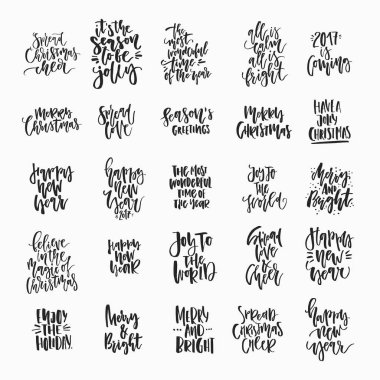 Spread
Christmas
cheer
it's the
season
to be
jolly
The
most
wonderful
time
of the year
all is
calm
all is
bright
2017
is
coming
Merry
Christmas
Spread
love
Season's
GREETINGS
Merry
Christmas
HAVE A
JOLLY
CHRISTMAS
Happy
new
year
happy
new
year
2017
THE MOST
WONDERFUL
TIME OF
THE YEAR
Joy to
the
World
Merry
AND
Bright
believe
in the
magic of
Christmas
Happy
new
year
JOY TO
THE
WORLD
Spread
love &
cheer
Happy
new
year
ENJOY
THE
HOLIDAY
Merry
&
Bright
MERRY
AND
BRIGHT
SPREAD
CHRISTMAS
CHEER
happy
new
year